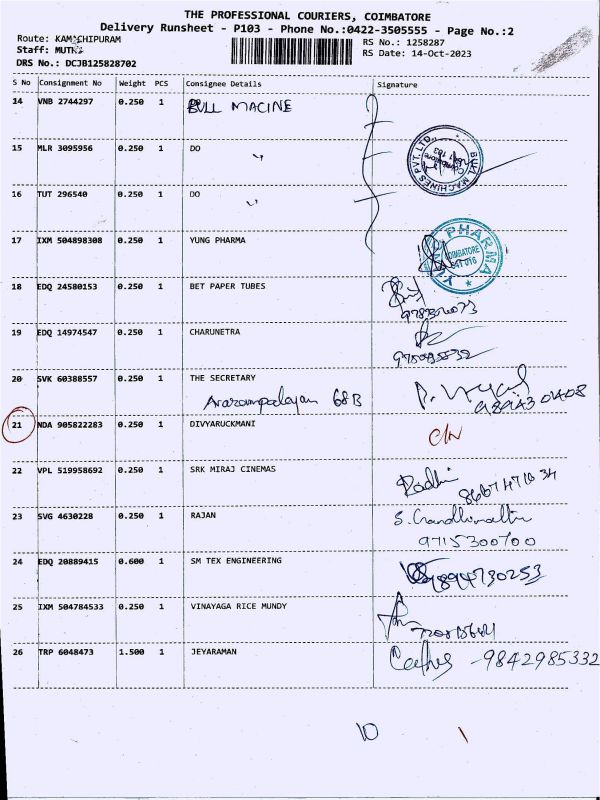 THE PROFESSIONAL COURIERS, COIMBATORE
Delivery Runsheet - P103 - Phone No.:0422-3505555 - Page No.:2
Route: KAMACHIPURAM
RS No.: 1258287
Staff: MUTHU
RS Date: 14-Oct-2023
DRS No.: DCJB125828702
S No Consignment No Weight PCS Consignee Details Signature
14 VNB 2744297 0.250 1 BULL MACINE
15 MLR 3095956 0.250 1 DO
16 TUT 296540 0.250 1 DO
BULL MACHINES PVT. LTD.
17 IXM 504898308 0.250 1 YUNG PHARMA
PHARMA COIMBATORE
18 EDQ 24580153 0.250 1 BET PAPER TUBES
19 EDQ 14974547 0.250 1 CHARUNETRA
20 SVK 60388557 0.250 1 THE SECRETARY
68B
21 NDA 905822283 0.250 1 DIVYARUCKMANI
22 VPL 519958692 0.250 1 SRK MIRAJ CINEMAS
23 SVG 4630228 0.250 1 RAJAN
9715300700
24 EDQ 20889415 0.600 1 SM TEX ENGINEERING
9894730253
25 IXM 504784533 0.250 1 VINAYAGA RICE MUNDY
26 TRP 6048473 1.500 1 JEYARAMAN
-9842985332
10 1